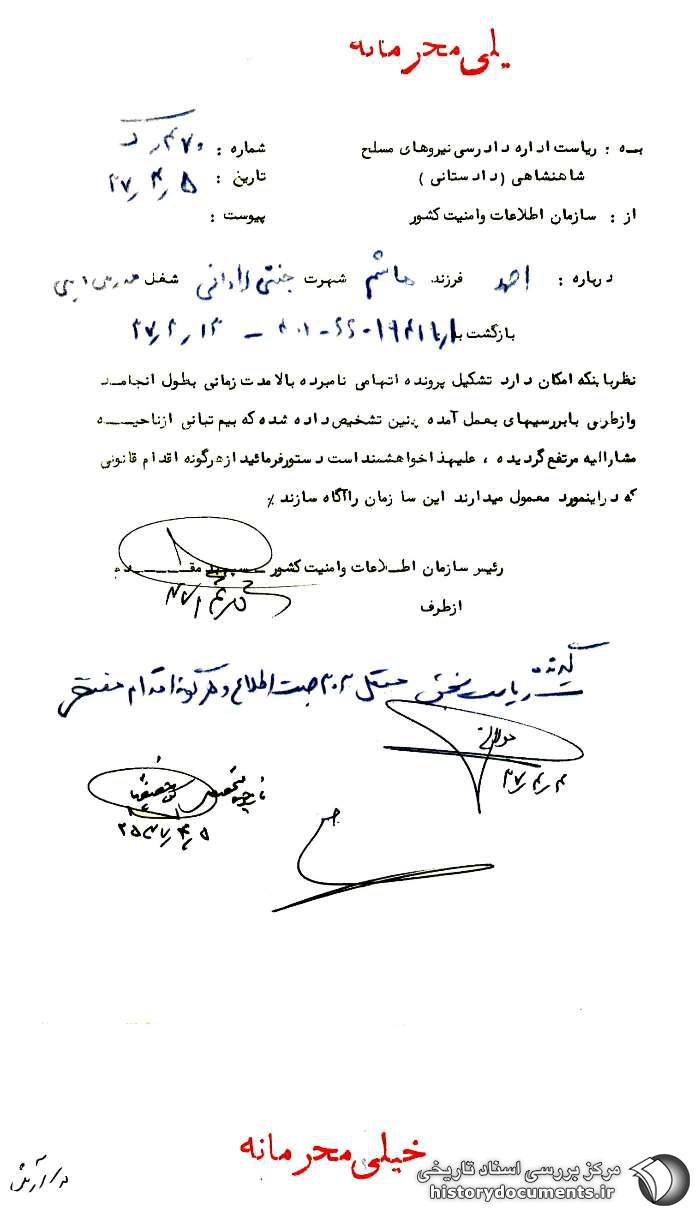 یلی محرمانه
به : ریاست اداره دادرسی نیروهای مسلح شماره :
شاهنشاهی (دادستانی) تاریخ : ۳۷٫۴٫۵
از : سازمان اطلاعات وامنیت کشور پیوست :
درباره : احمد فرزند هاشم شهرت جنتی لادانی شغل
بازگشت به
نظرباینکه امکان دارد تشکیل پرونده اتهامی نامبرده بالا مدت زمانی بطول انجامد
وازطرفی بابررسیهای بعمل آمده چنین تشخیص داده شده که بیم تبانی ازناحیه
مشارالیه مرتفع گردیده ، علیهذا خواهشمند است دستورفرمائید ازهرگونه اقدام قانونی
که دراینمورد معمول میدارند این سازمان راآگاه سازند ٪
رئیس سازمان اطلاعات وامنیت کشور سپهبد مقدم
ازطرف
گیرنده
ریاست بخش مستقل ۳۰۲ جهت اطلاع و هرگونه اقدام مقتضی
۳۷٫۴٫۴
۲۵۳۷٫۴٫۵
خیلی محرمانه
مرکز بررسی اسناد تاریخی
historydocuments.ir